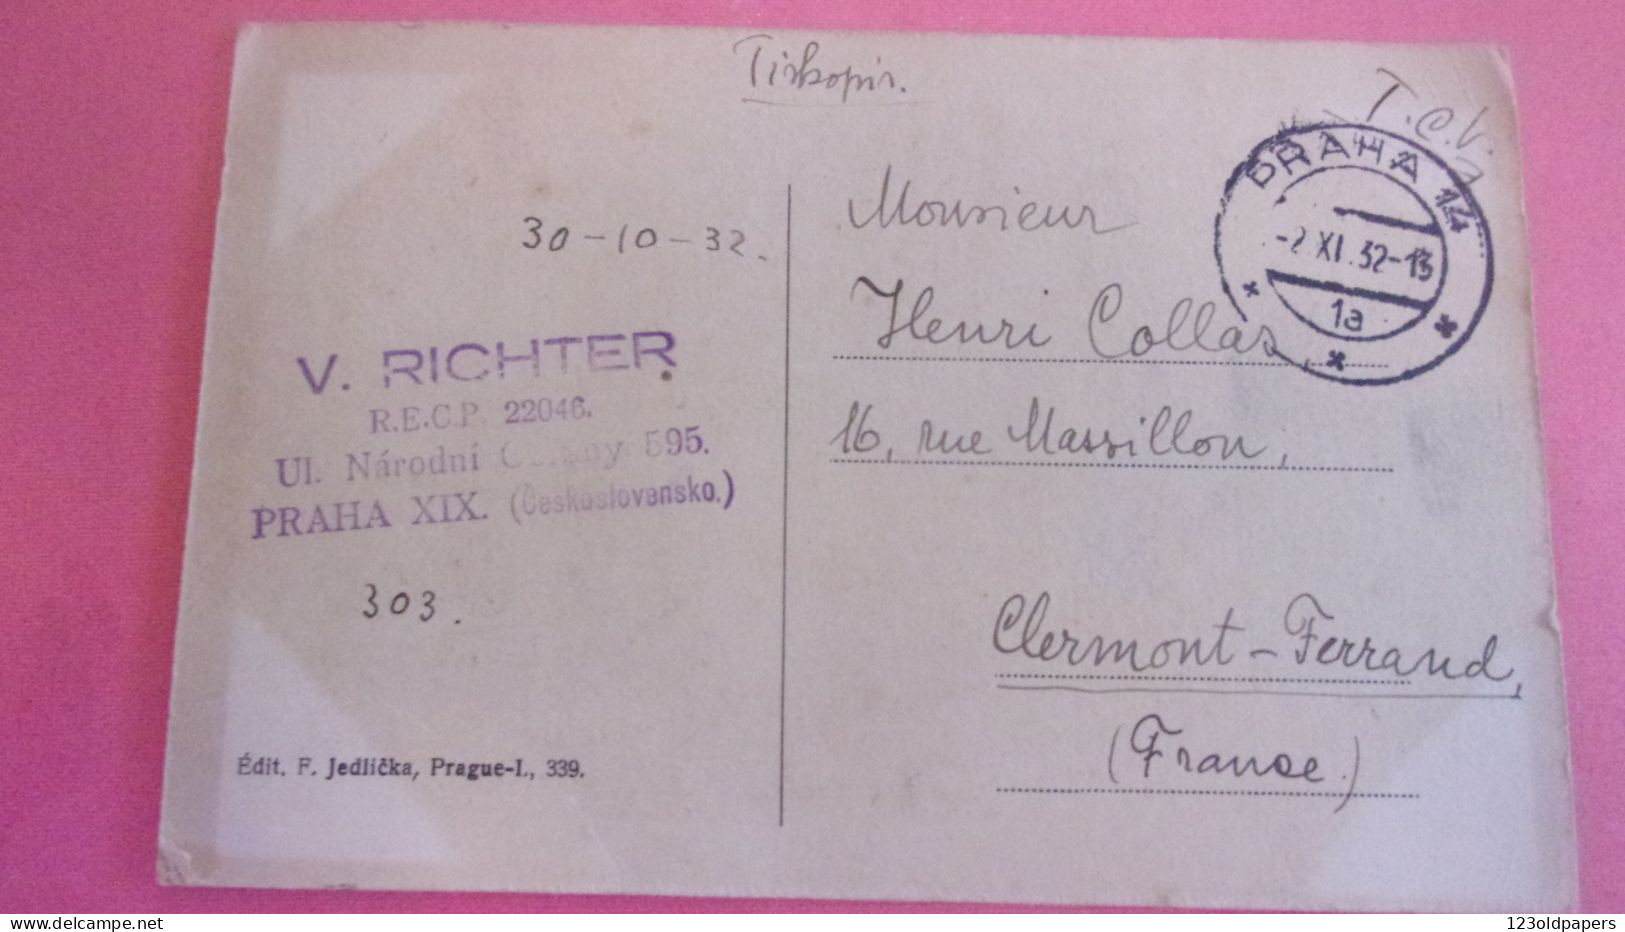 Tiskopis.
T.C.V.
PRAHA 14
-2.XI.32-13
1a
30-10-32.
V. RICHTER
R.E.C.P. 22046.
Ul. Národní 595.
PRAHA XIX. (Československo.)
303.
Édit. F. Jedlička, Prague-I., 339.
Monsieur
Henri Collas,
16, rue Massillon,
Clermont-Ferrand,
(France.)
delcampe.net
123oldpapers